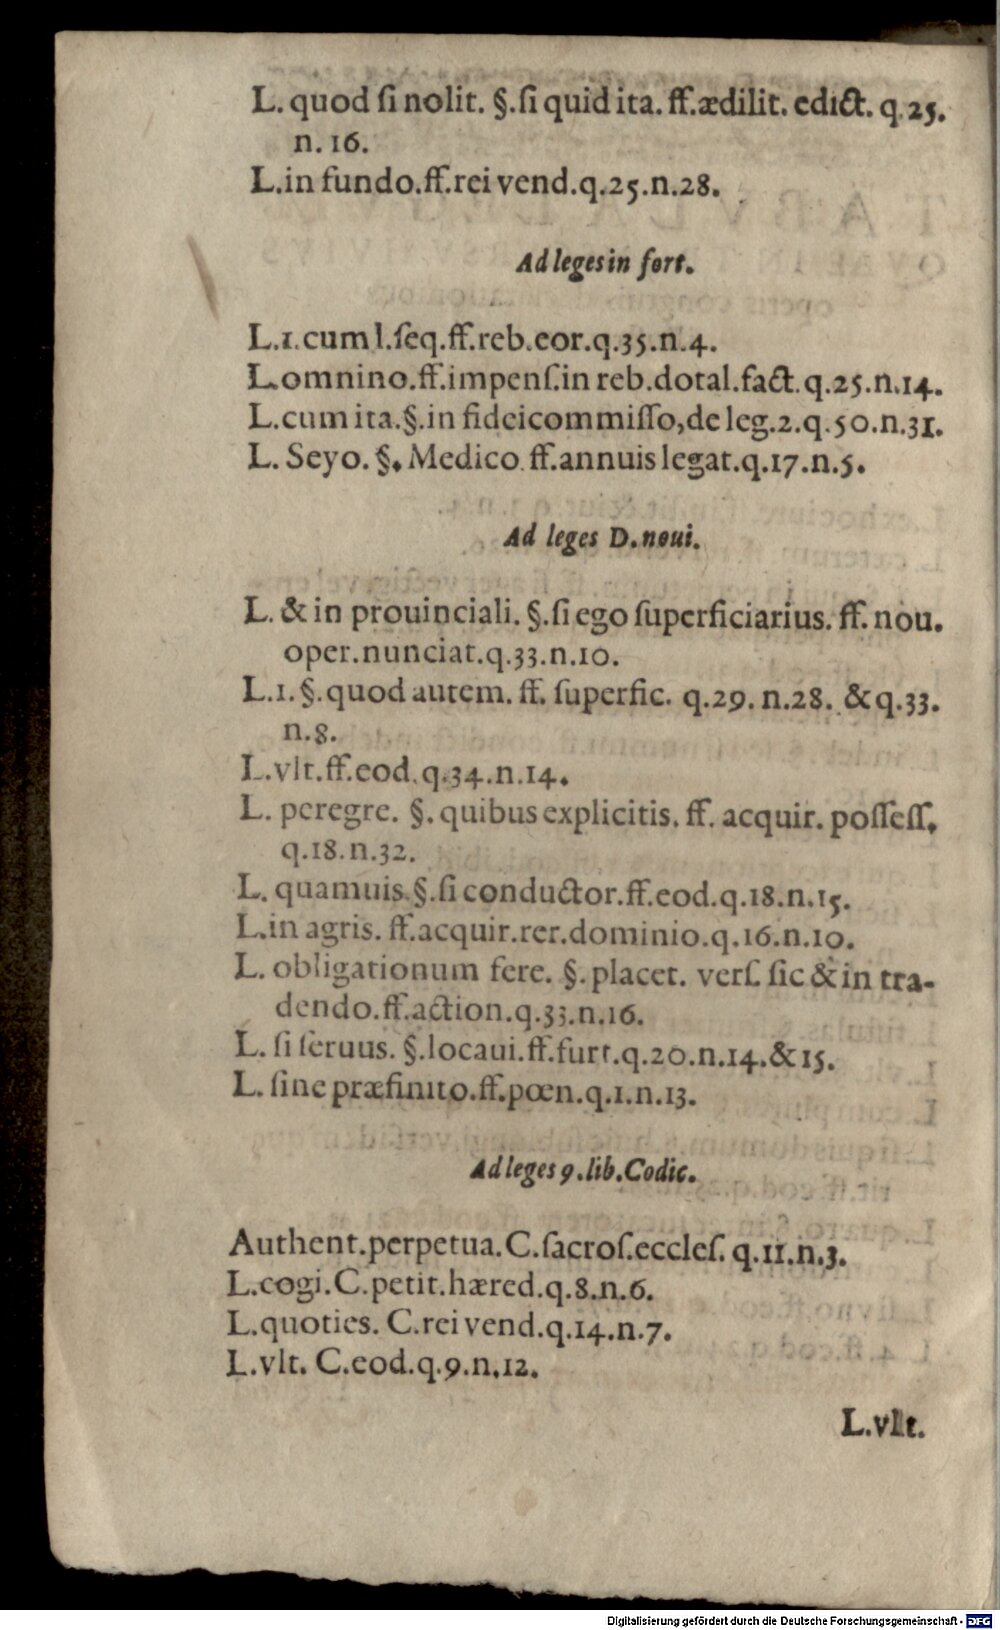 L. quod ſi nolit. §. ſi quid ita. ff. ædilit. edict. q. 25.
n. 16.
L. in fundo. ff. rei vend. q. 25. n. 28.
Ad leges in fort.
L. 1. cum l. ſeq. ff. reb. eor. q. 35. n. 4.
L. omnino. ff. impenſ. in reb. dotal. fact. q. 25. n. 14.
L. cum ita. §. in fideicommiſſo, de leg. 2. q. 50. n. 31.
L. Seyo. §. Medico. ff. annuis legat. q. 17. n. 5.
Ad leges D. noui.
L. & in prouinciali. §. ſi ego ſuperficiarius. ff. nou.
oper. nunciat. q. 33. n. 10.
L. 1. §. quod autem. ff. ſuperfic. q. 29. n. 28. & q. 33.
n. 8.
L. vlt. ff. eod. q. 34. n. 14.
L. peregre. §. quibus explicitis. ff. acquir. poſſeſſ.
q. 18. n. 32.
L. quamuis. §. ſi conductor. ff. eod. q. 18. n. 15.
L. in agris. ff. acquir. rer. dominio. q. 16. n. 10.
L. obligationum fere. §. placet. verſ. ſic & in tra-
dendo. ff. action. q. 33. n. 16.
L. ſi ſeruus. §. locaui. ff. furt. q. 20. n. 14. & 15.
L. ſine præfinito. ff. pœn. q. 1. n. 13.
Ad leges 9. lib. Codic.
Authent. perpetua. C. ſacroſ. eccleſ. q. 11. n. 3.
L. cogi. C. petit. hæred. q. 8. n. 6.
L. quoties. C. rei vend. q. 14. n. 7.
L. vlt. C. eod. q. 9. n. 12.
L. vlt.
Digitalisierung gefördert durch die Deutsche Forschungsgemeinschaft - DFG